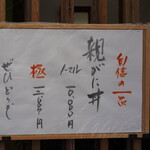 自信の一品
親がに丼
ノーマル 一、〇〇〇円
極 一二、
ぜひどうぞ